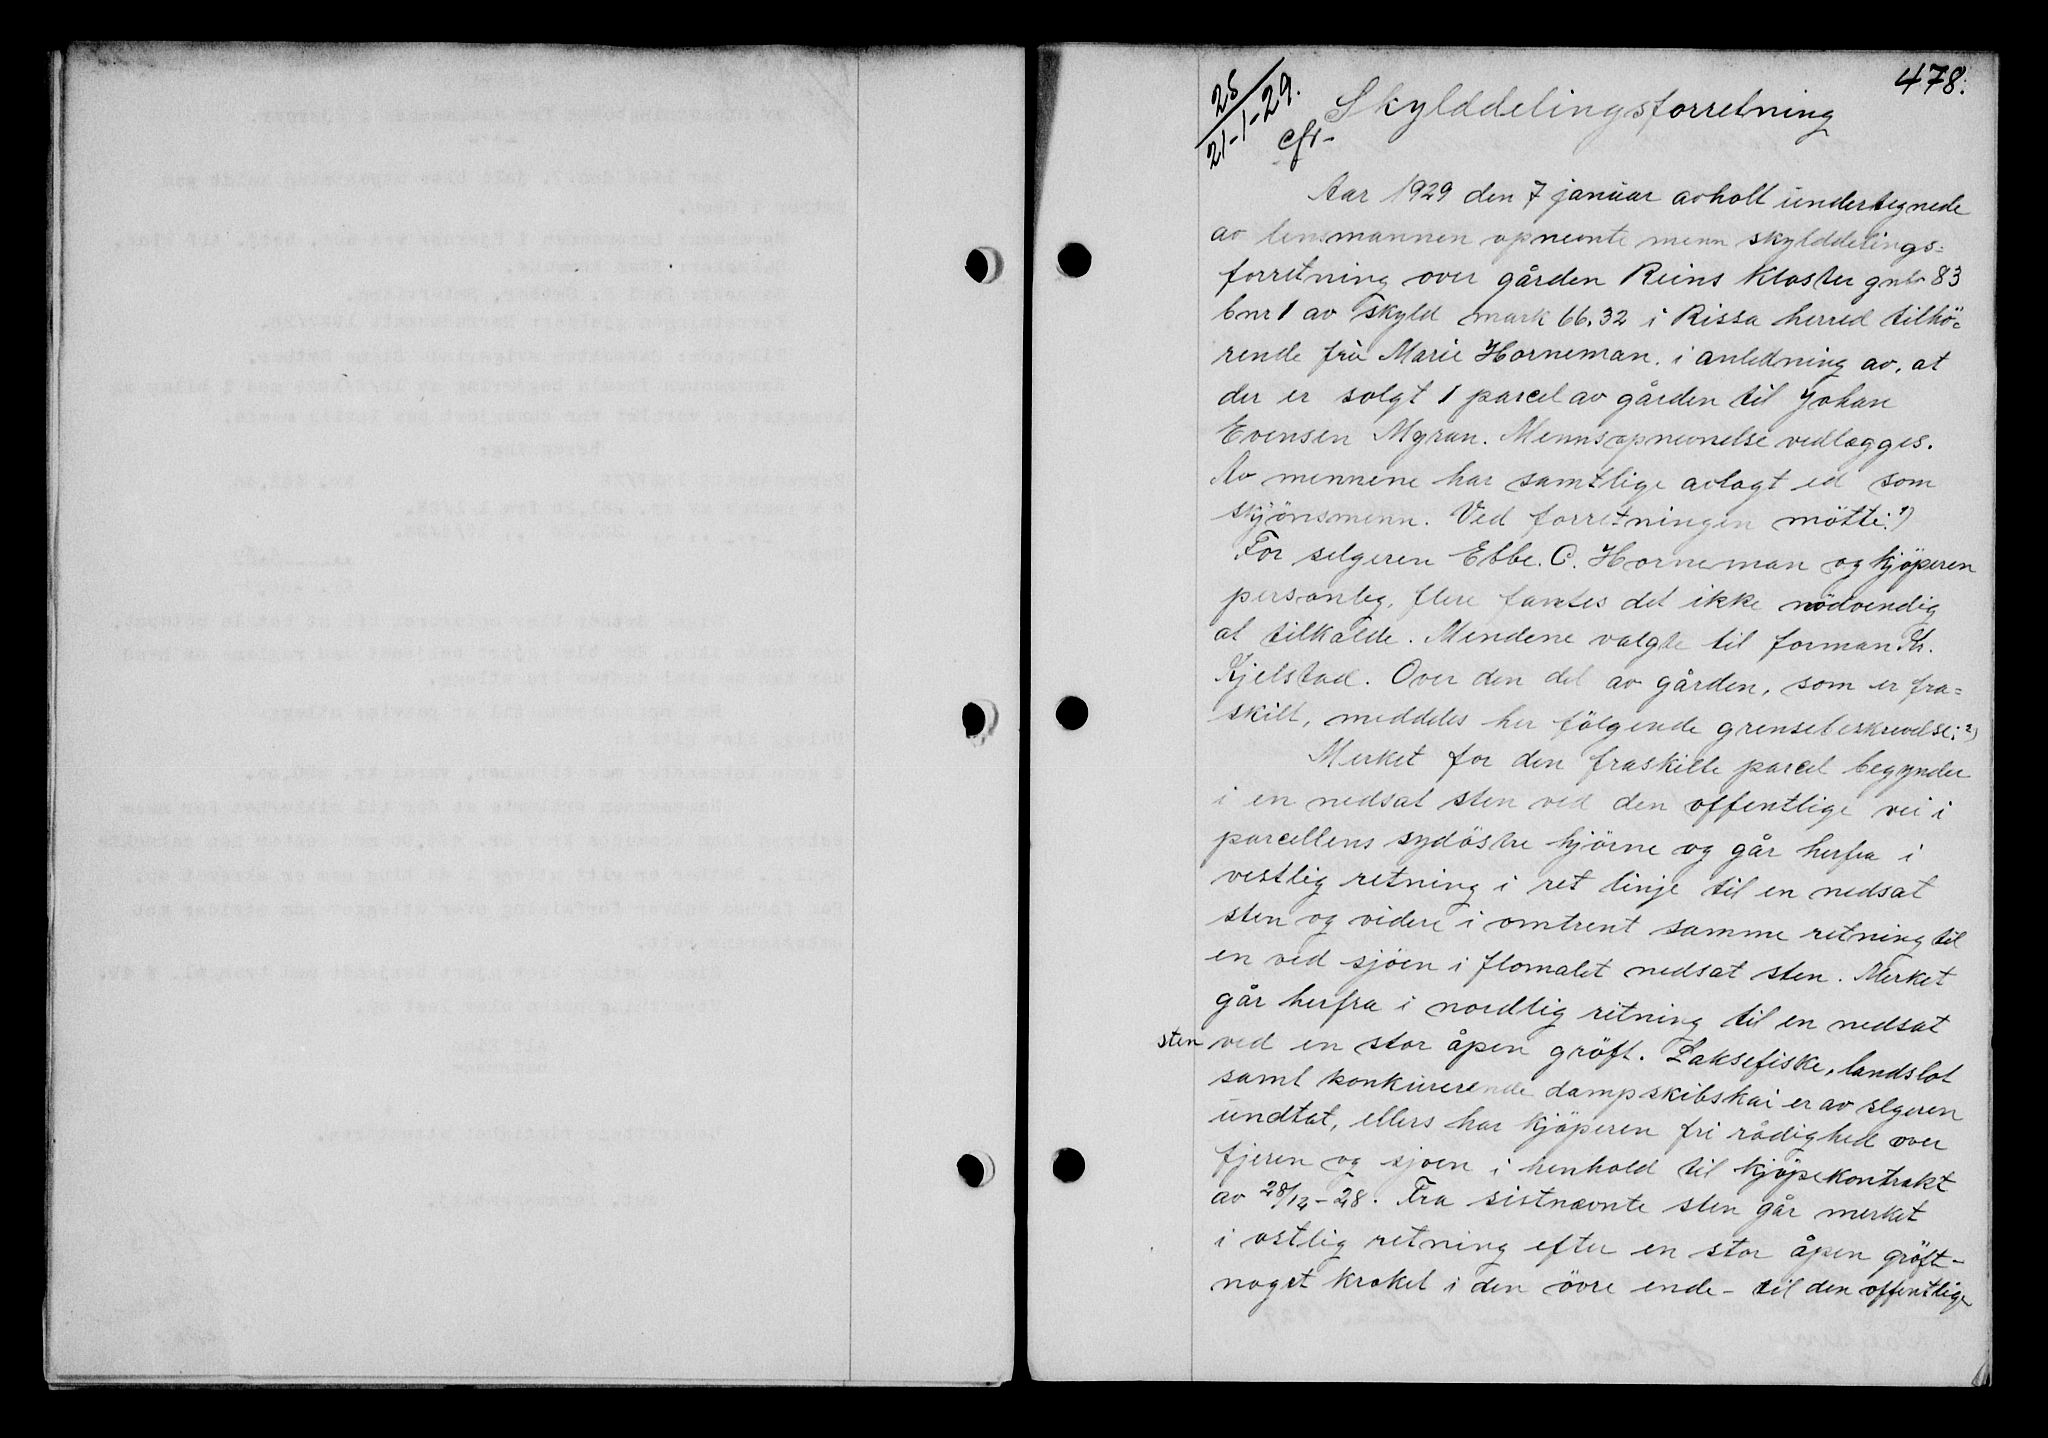 478.
25/21-1-29.
cfr-
Skylddelingsforretning
Aar 1929 den 7 januar avholt undertegnede
av lensmannen opnevnte menn skylddelings=
forretning over gården Reins Kloster gnr 83
bnr 1 av skyld mark 66.32 i Rissa herred tilhö=
rende frü Marie Horneman. i anledning av, at
der er solgt 1 parcel av gården til Johan
Evensen Myran. Mennsopnevnelse vedlægges.
Av mennene har samtlige avlagt ed som
skjönsmenn. Ved forretningen mötte: 1)
For selgeren Ebbe. C. Horneman og kjöperen
personleg, flere fantes det ikke nödvendig
at tilkalde. Mendene valgte til forman Th.
Kjelstad. Over den del av gården, som er fra=
skilt, meddeles her fölgende grensebeskrevelse: 2)
Merket for den fraskilte parcel begynder
i en nedsat sten ved den offentlige vei i
parcellens sydöstre hjörne og går herfra i
vestlig retning i ret linje til en nedsat
sten og videre i omtrent samme retning til
en ved sjöen i flomålet nedsat sten. Merket
går herfra i nordlig retning til en nedsat
sten ved en stor åpen gröft. Laksefiske, landslot
samt konkurerende dampskibskai er av selgeren
undtat, ellers har kjöperen fri rådighed over
fjeren og sjoen i henhold til kjöpekontrakt
av 28/12-28. Fra sistnævnte sten går merket
i ostlig retning efter en stor åpen gröft-
noget kroket i den övre ende- til den offentlige